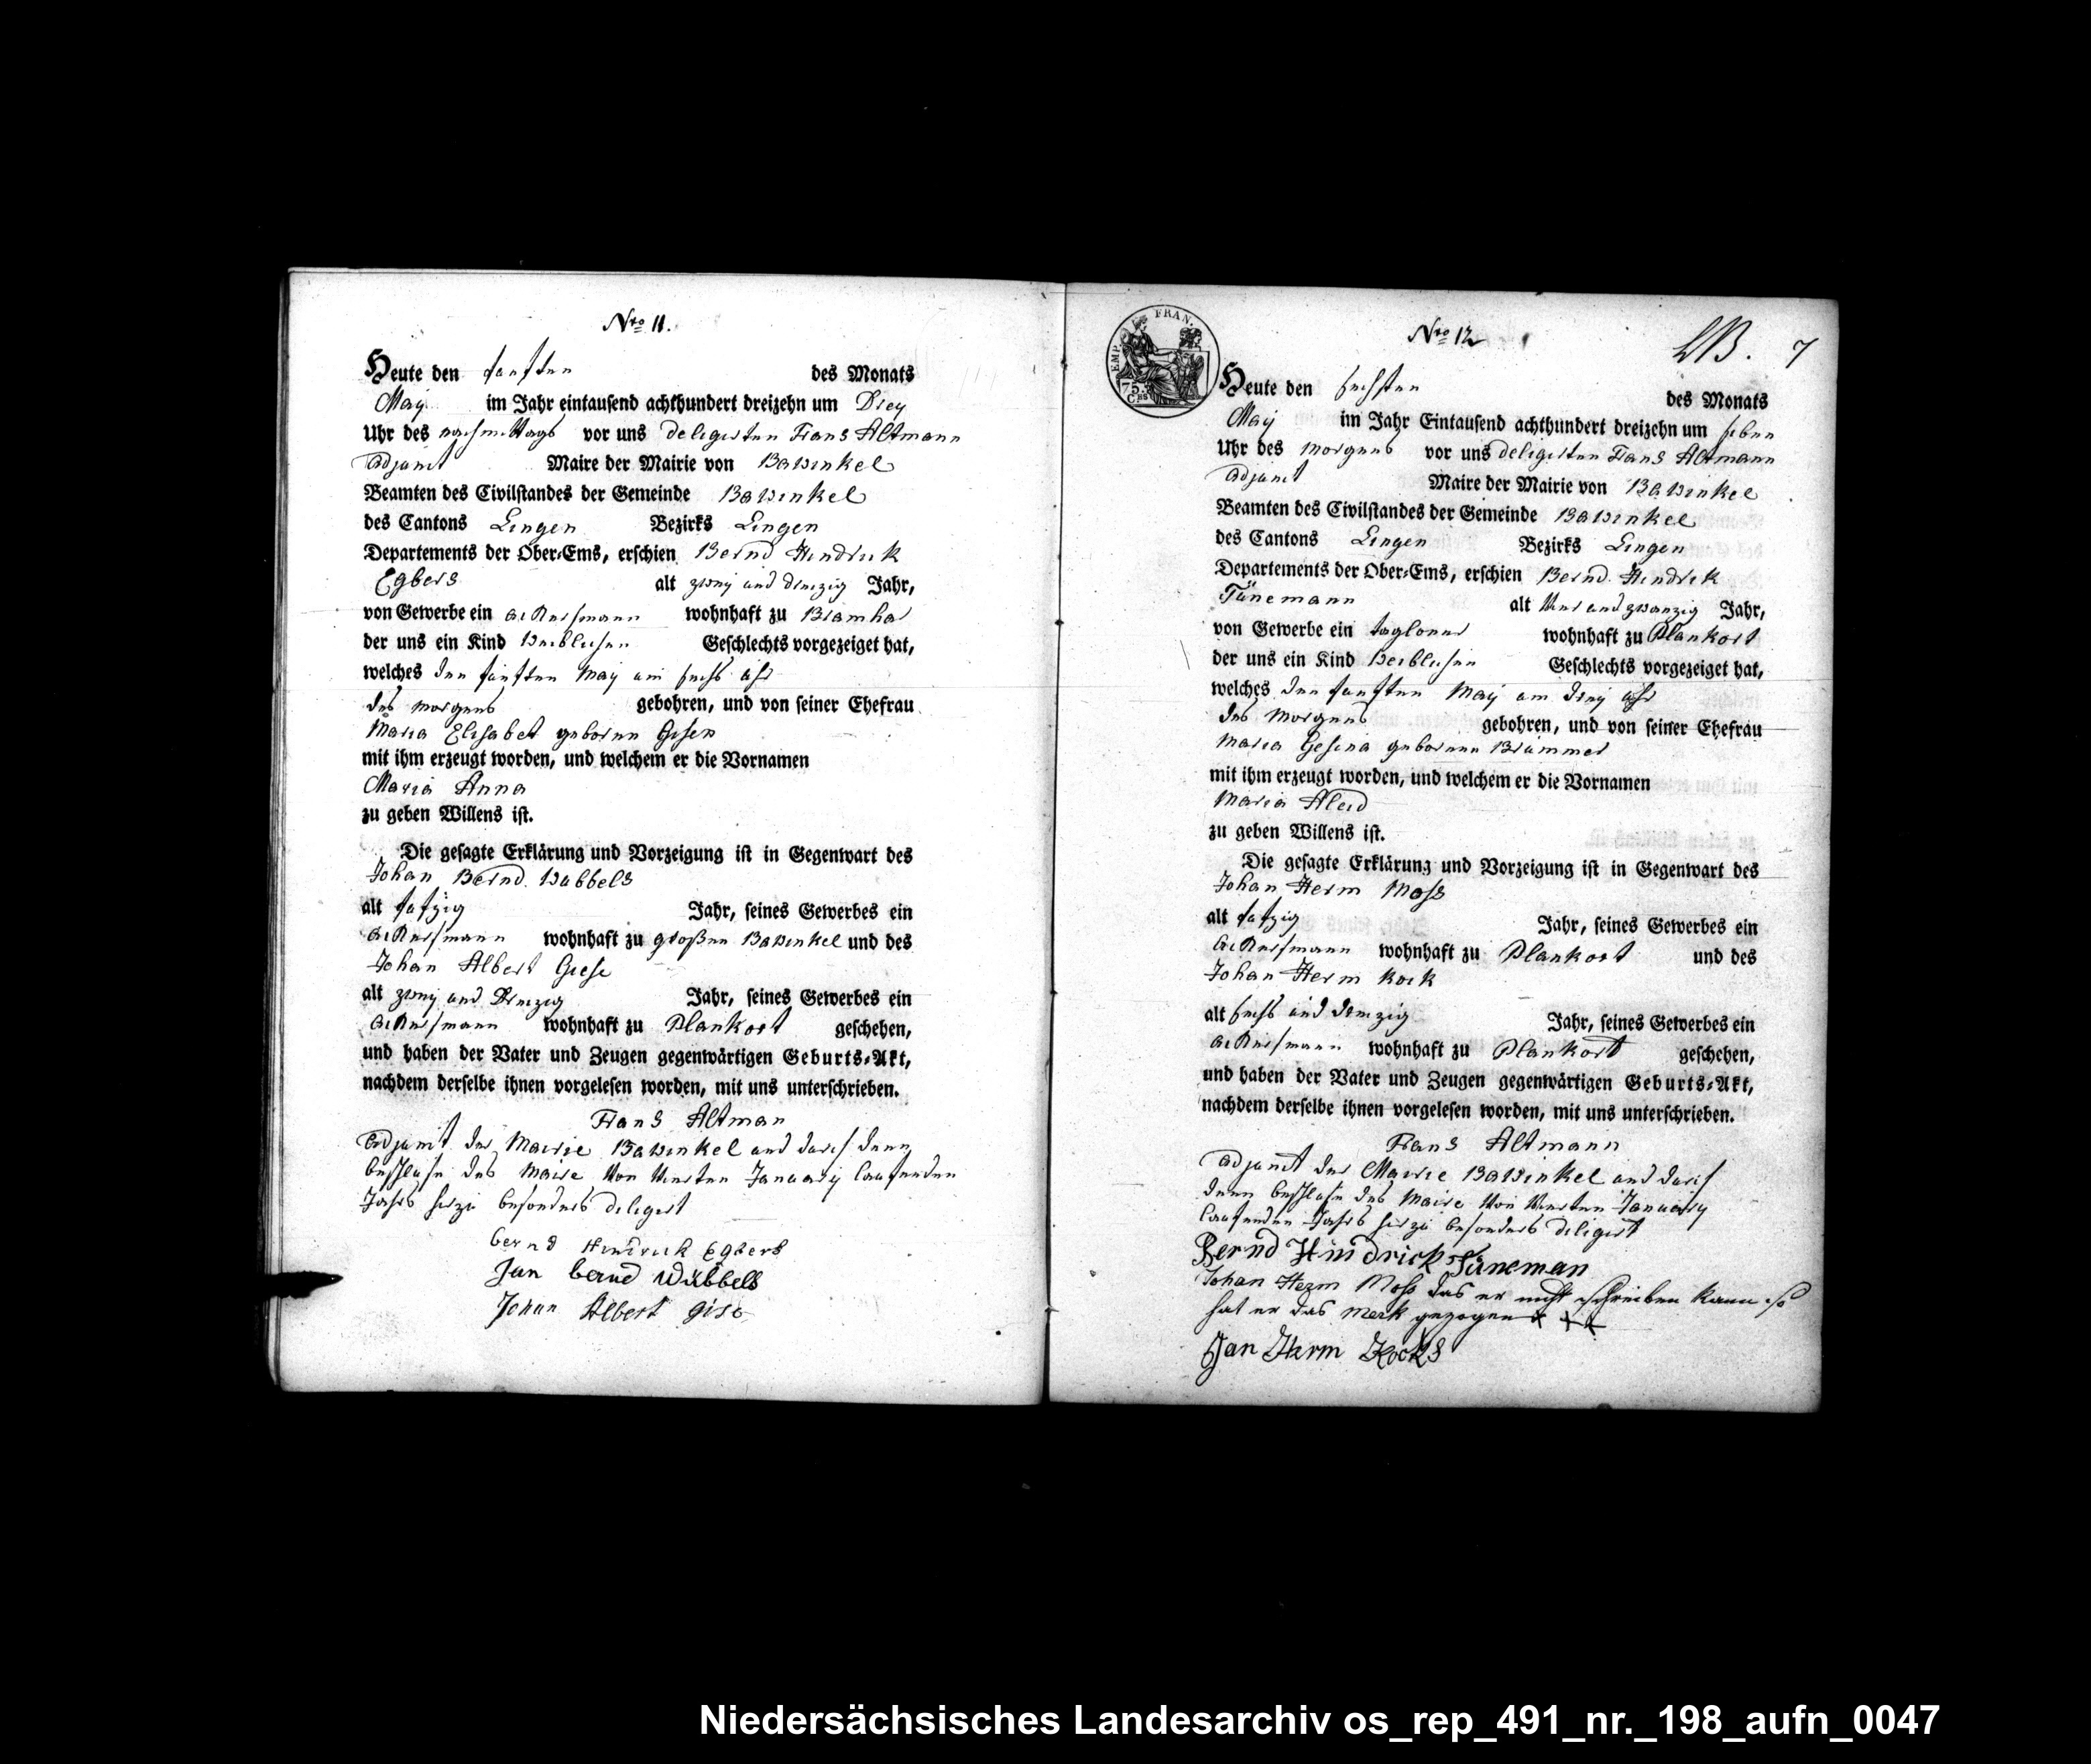 Nro 11.
Heute den fünften des Monats
May im Jahr eintausend achthundert dreizehn um Drey
Uhr des nachmittags vor uns deligirten Frans Altmann
adjunct Maire der Mairie von Bawinkel
Beamten des Civilstandes der Gemeinde Bawinkel
des Cantons Lingen Bezirks Lingen
Departements der Ober-Ems, erschien Bernd Hindrik
Egbers alt zwey und dreizig Jahr,
von Gewerbe ein ackersmann wohnhaft zu Bramhar
der uns ein Kind Weiblichen Geschlechts vorgezeiget hat,
welches den fünften May um sechs uhr
des morgens gebohren, und von seiner Ehefrau
Maria Elisabet geboren Gisen
mit ihm erzeugt worden, und welchem er die Vornamen
Maria Anna
zu geben Willens ist.
Die gesagte Erklärung und Vorzeigung ist in Gegenwart des
Johan Bernd Wübbels
alt fufzig Jahr, seines Gewerbes ein
ackersmann wohnhaft zu großen Bawinkel und des
Johan Albert Giese
alt zwey und Dreizig Jahr, seines Gewerbes ein
ackersmann wohnhaft zu Plankort geschehen,
und haben der Vater und Zeugen gegenwärtigen Geburts-Akt,
nachdem derselbe ihnen vorgelesen worden, mit uns unterschrieben.
Frans Altman
adjunct der Mairie Bawinkel und durch denen
beschluse des Maire von Vierten January laufenden
Jahrs hirzu besonders deligirt
bernd Hindrick Egbers
Jan bernd Wübbels
Johan Albert Gise
EMP. FRAN.
75. Ces
Nro 12
LB. 7
Heute den sechsten des Monats
May im Jahr Eintausend achthundert dreizehn um sieben
Uhr des morgens vor uns deligirten Frans Altmann
adjunct Maire der Mairie von Bawinkel
Beamten des Civilstandes der Gemeinde Bawinkel
des Cantons Lingen Bezirks Lingen
Departements der Ober-Ems, erschien Bernd Hindrik
Tünemann alt Vier und zwanzig Jahr,
von Gewerbe ein taglöner wohnhaft zu Plankort
der uns ein Kind Weiblichen Geschlechts vorgezeiget hat,
welches den fünften May um drey uhr
des Morgens gebohren, und von seiner Ehefrau
Maria Gesina geborenen Brümmer
mit ihm erzeugt worden, und welchem er die Vornamen
Maria Aleid
zu geben Willens ist.
Die gesagte Erklärung und Vorzeigung ist in Gegenwart des
Johan Herm Moss
alt fufzig Jahr, seines Gewerbes ein
ackersmann wohnhaft zu Plankort und des
Johan Herm Kock
alt sechs und dreizig Jahr, seines Gewerbes ein
ackersmann wohnhaft zu Plankort geschehen,
und haben der Vater und Zeugen gegenwärtigen Geburts-Akt,
nachdem derselbe ihnen vorgelesen worden, mit uns unterschrieben.
Frans Altmann
adjunct der Mairie Bawinkel und durch
denen beschluse des Maire von Vierten January
laufenden Jahrs hirzu besonders deligirt
Bernd Hindrick Tüneman
Johan Herm Moss das er nicht schreiben kann so
hat er das Merk gezogen + + +
Jan Herm Kocks
Niedersächsisches Landesarchiv os_rep_491_nr._198_aufn_0047